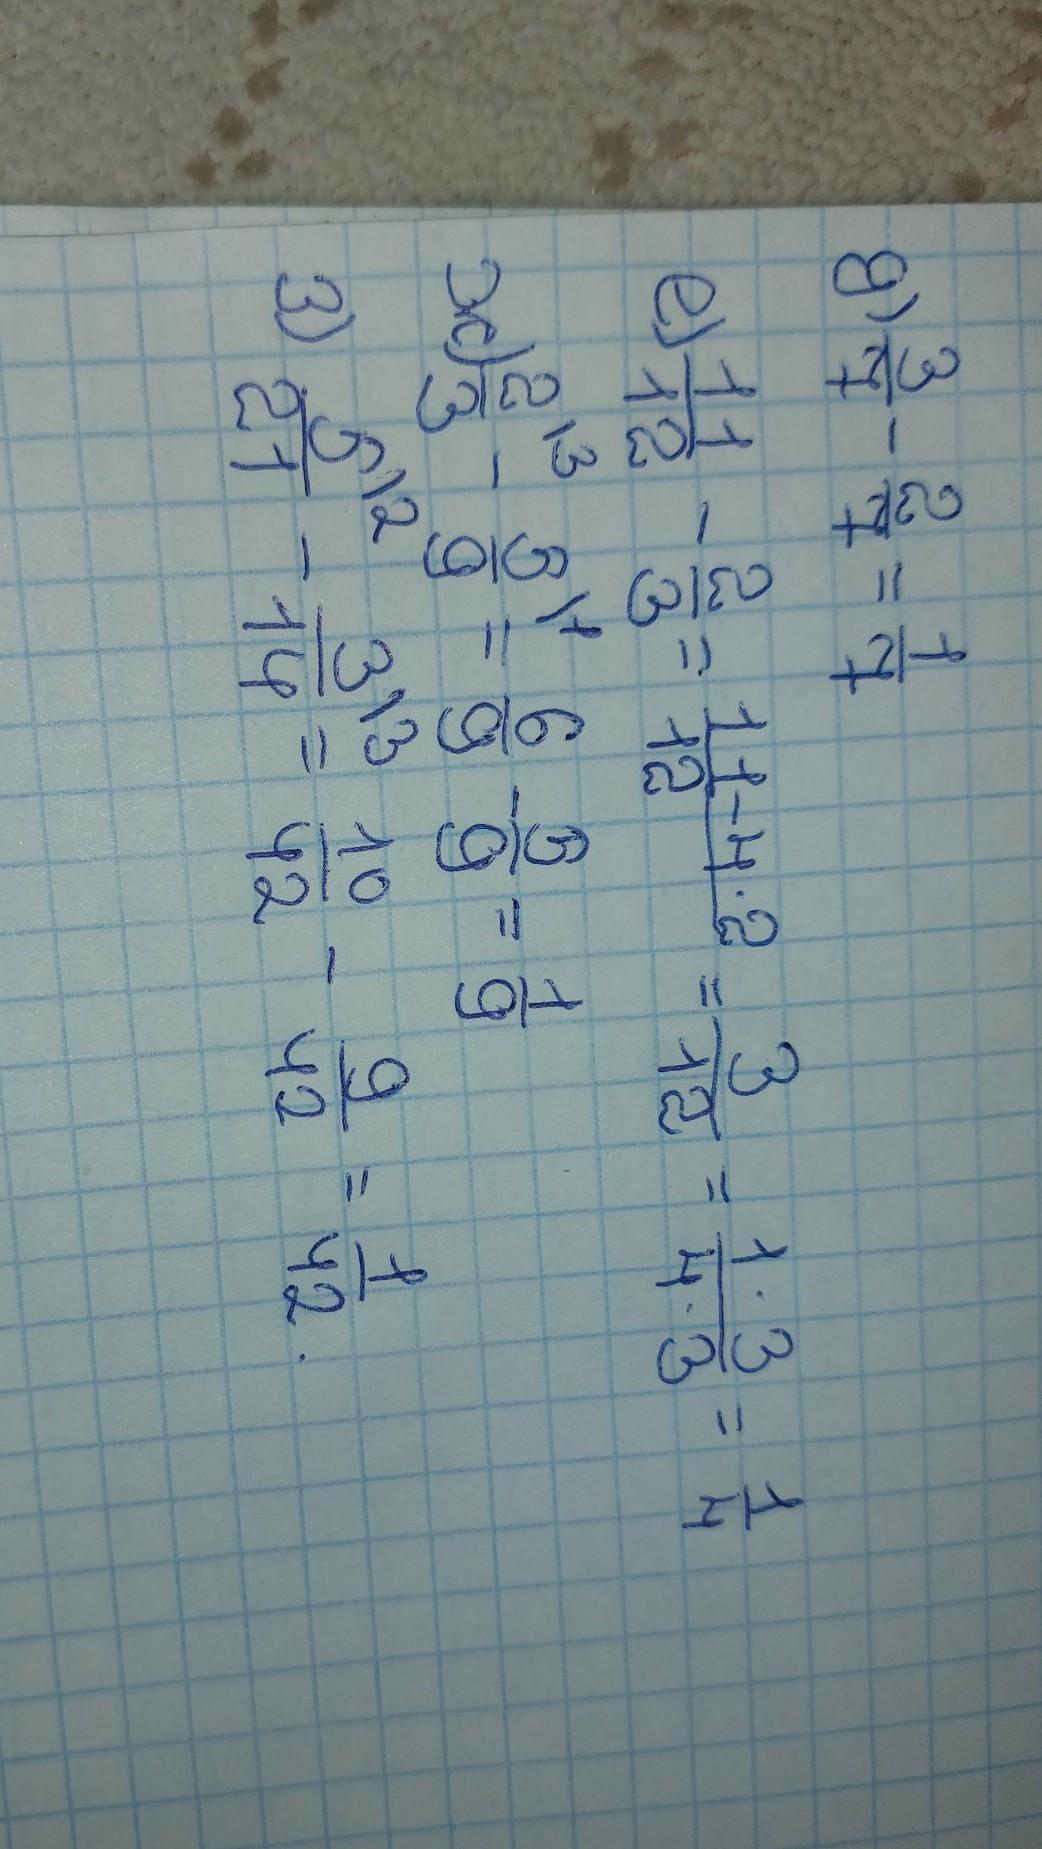 д) 3/7 - 2/7 = 1/7
е) 11/12 - 2/3 = 11-4·2/12 = 3/12 = 1·3/4·3 = 1/4
ж) 2\3/3 - 5\1/9 = 6/9 - 5/9 = 1/9
з) 5\2/21 - 3\3/14 = 10/42 - 9/42 = 1/42.